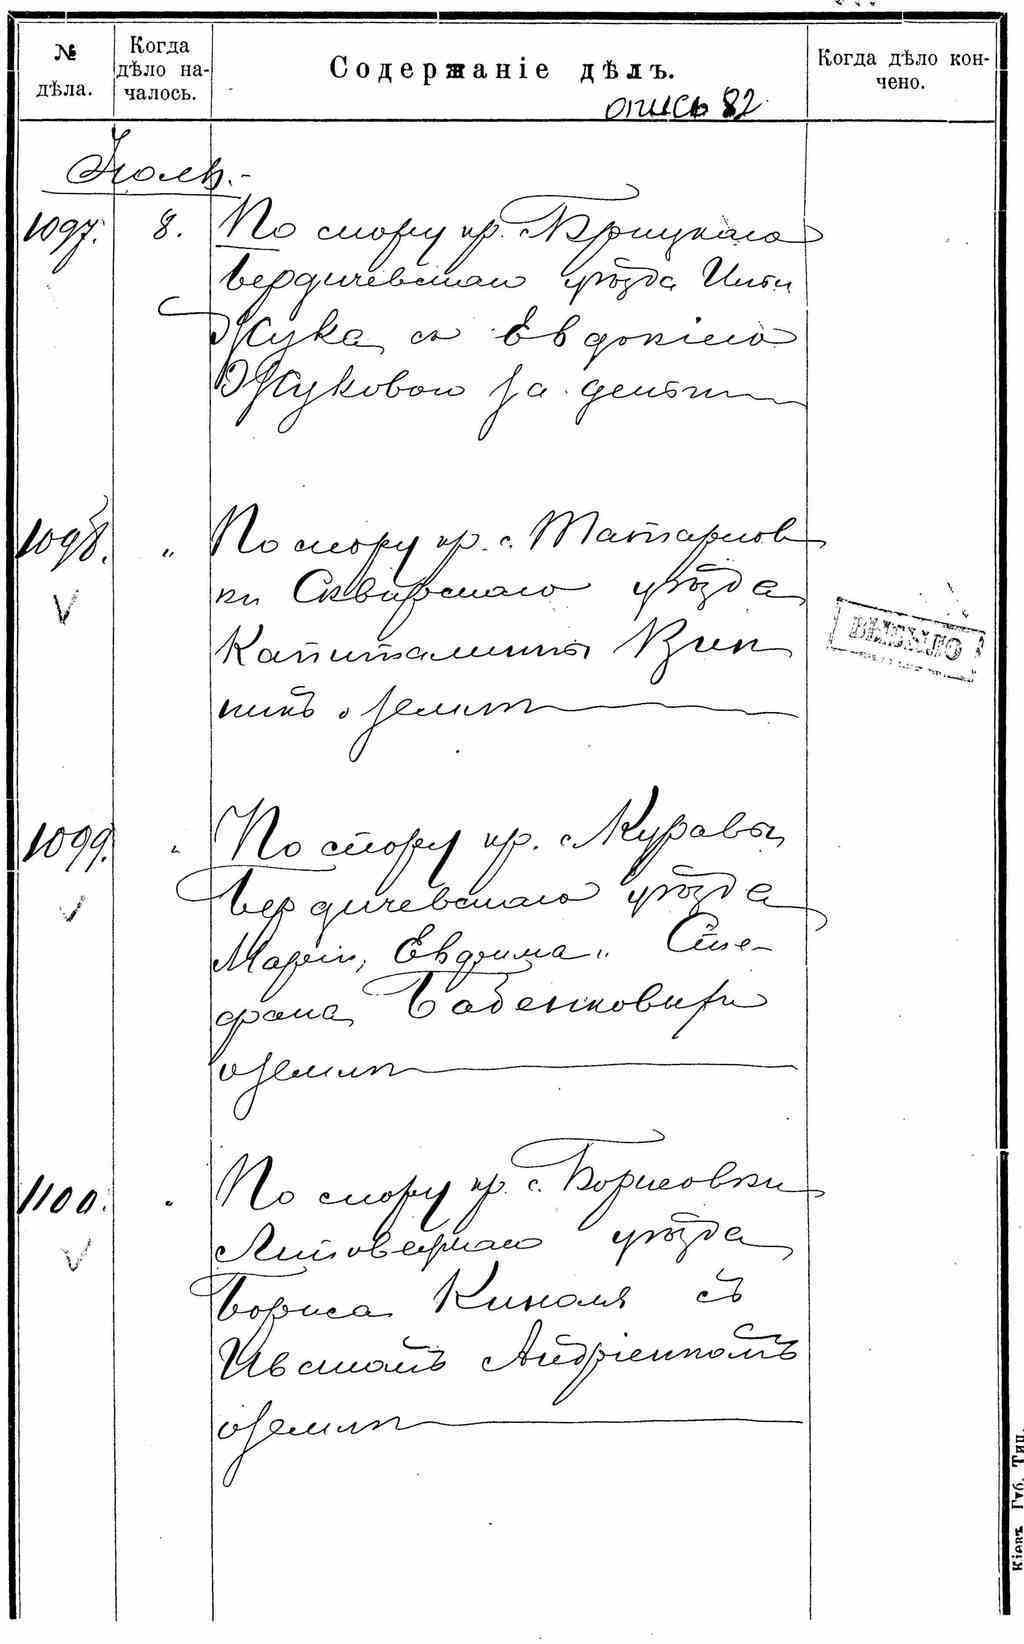 № дѣла.
Когда дѣло на-
чалось.
Содержаніе дѣлъ.
Когда дѣло кон-
чено.
опись 82
Іюль.
1097. 8. По спору кр. с. Брицкаго
Бердичевскаго уѣзда
Жука съ Евдокіею
Жуковою за
1098. „ По спору кр. с. Татаринов
ки Сквирскаго уѣзда
Капиталины
о землѣ
ВЫБЫЛО
1099. „ По спору кр. с. Журавы
Бердичевскаго уѣзда
Маріи, Евдокима и Сте-
фана
о землѣ
1100. „ По спору кр. с. Борисовки
Липовецкаго уѣзда
Бориса съ
Андріенкомъ
о землѣ
Кіевъ. Губ. Тип.